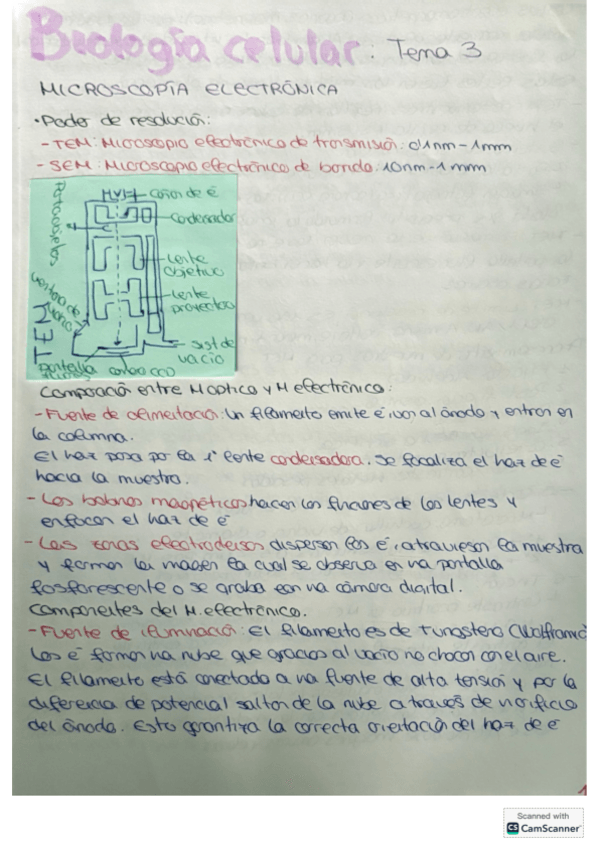 Biología celular: Tema 3
MICROSCOPÍA ELECTRÓNICA
• Poder de resolución:
- TEM: Microscopio electrónico de transmisión: 0'1nm - 1mm
- SEM: Microscopio electrónico de barrido: 10nm - 1mm
cañón de é
condensador
lente
objetivo
lente
proyectora
sist de
vacío
TEM
pantalla
cámara CCD
Comparación entre M óptico y M electrónico:
- Fuente de alimentación: un filamento emite é, van al ánodo y entran en
la columna.
El haz pasa por la 1ª lente condensadora. Se focaliza el haz de é
hacia la muestra.
- Las bobinas magnéticas hacen las funciones de las lentes y
enfocan el haz de é
- Las zonas electrodensas dispersan los é, atraviesan la muestra
y forman la imagen la cual se observa en una pantalla
fosforescente o se graba con una cámara digital.
Componentes del M. electrónico.
- Fuente de iluminación: El filamento es de Tungsteno (Wolframio)
Los é forman una nube que gracias al vacío no chocan con el aire.
El filamento está conectado a una fuente de alta tensión y por la
diferencia de potencial saltan de la nube a través de un orificio
del ánodo. Esto garantiza la correcta orientación del haz de é
1
Scanned with
CS CamScanner